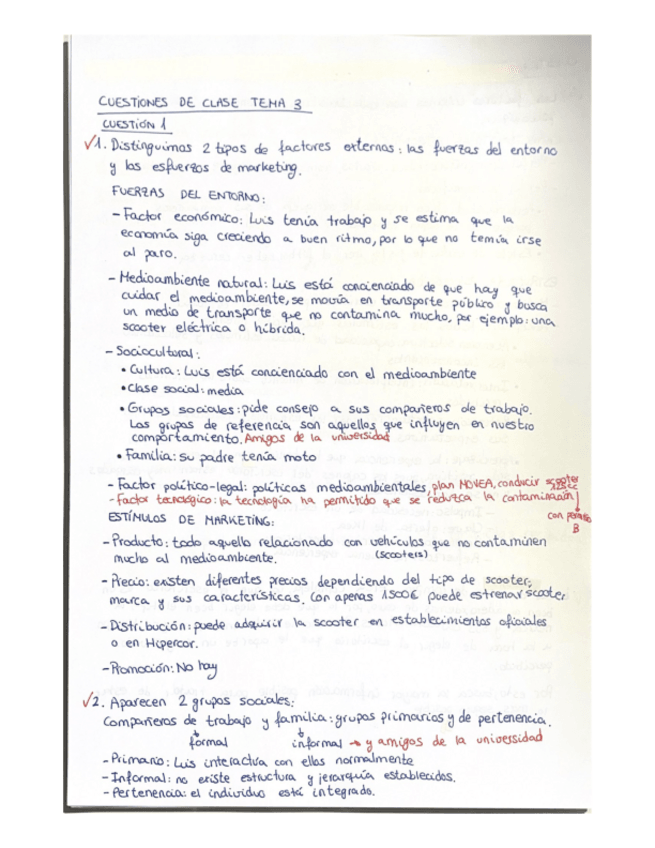 CUESTIONES DE CLASE TEMA 3
CUESTIÓN 1
✓1. Distinguimos 2 tipos de factores externos: las fuerzas del entorno
y los esfuerzos de marketing.
FUERZAS DEL ENTORNO:
- Factor económico: Luis tenía trabajo y se estima que la
economía siga creciendo a buen ritmo, por lo que no temía irse
al paro.
- Medioambiente natural: Luis está concienciado de que hay que
cuidar el medioambiente, se movía en transporte público y busca
un medio de transporte que no contamina mucho, por ejemplo: una
scooter eléctrica o híbrida.
- Sociocultural:
• Cultura: Luis está concienciado con el medioambiente
• Clase social: media
• Grupos sociales: pide consejo a sus compañeros de trabajo.
Los grupos de referencia son aquellos que influyen en nuestro
comportamiento. Amigos de la universidad
• Familia: su padre tenía moto
- Factor político-legal: políticas medioambientales, plan MOVEA, conducir scooter
125cc
- Factor tecnológico: la tecnología ha permitido que se reduzca la contaminación
con permiso
B
ESTÍMULOS DE MARKETING:
- Producto: todo aquello relacionado con vehículos que no contaminen
mucho al medioambiente. (scooters)
- Precio: existen diferentes precios dependiendo del tipo de scooter,
marca y sus características. Con apenas 1500€ puede estrenar scooter
- Distribución: puede adquirir la scooter en establecimientos oficiales
o en Hipercor.
- Promoción: No hay
✓2. Aparecen 2 grupos sociales:
Compañeros de trabajo y familia: grupos primarios y de pertenencia.
formal informal → y amigos de la universidad
- Primario: Luis interactiva con ellos normalmente
- Informal: no existe estructura y jerarquía establecidos.
- Pertenencia: el individuo está integrado.